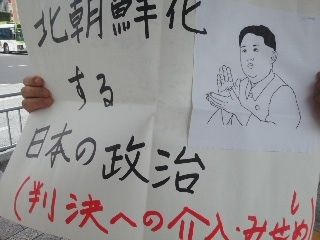 北朝鮮化
する
日本の政治
(判決への介入・みせしめ